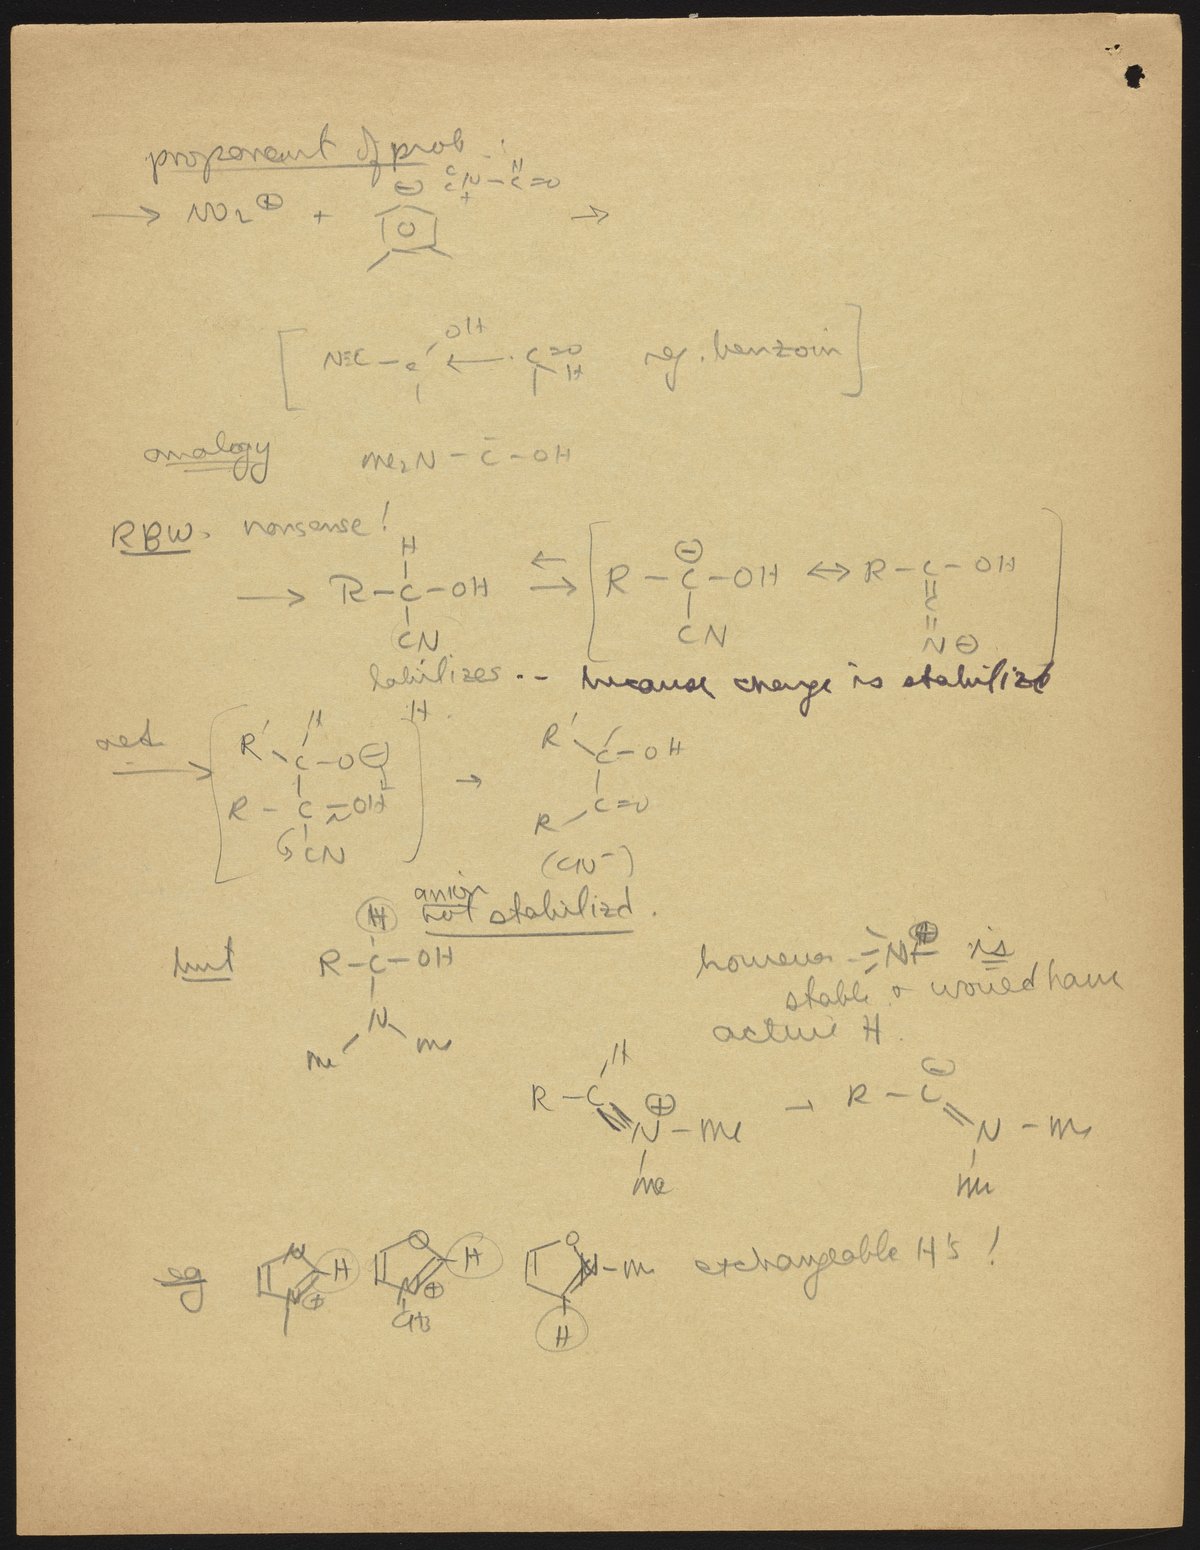 proponent of prob :
→ NO2 ⊕ + ⊖ C C N + – C H =O →
[ N≡C – C OH ← C =O H eg. benzoin ]
analogy me2N – C̄ – OH
RBW. nonsense!
→ R – C H – OH CN ⇌ [ R – C ⊖ – OH CN ↔ R – C – OH = C = N ⊖ ]
labilizes -- because charge is stabilizd
H
R' – C H – O ⊖ R – C – OH CN → R' – C – OH R – C =O
(CN⁻)
anion
not stabilizd.
but R – C (H) – OH N me me
however N ⊕ is
stable & would have
active H.
R – C H = N ⊕ – Me Me → R – C ⊖ = N – Me Me
eg N N ⊕ H O N ⊕ CH3 H O N – m H exchangeable H's !